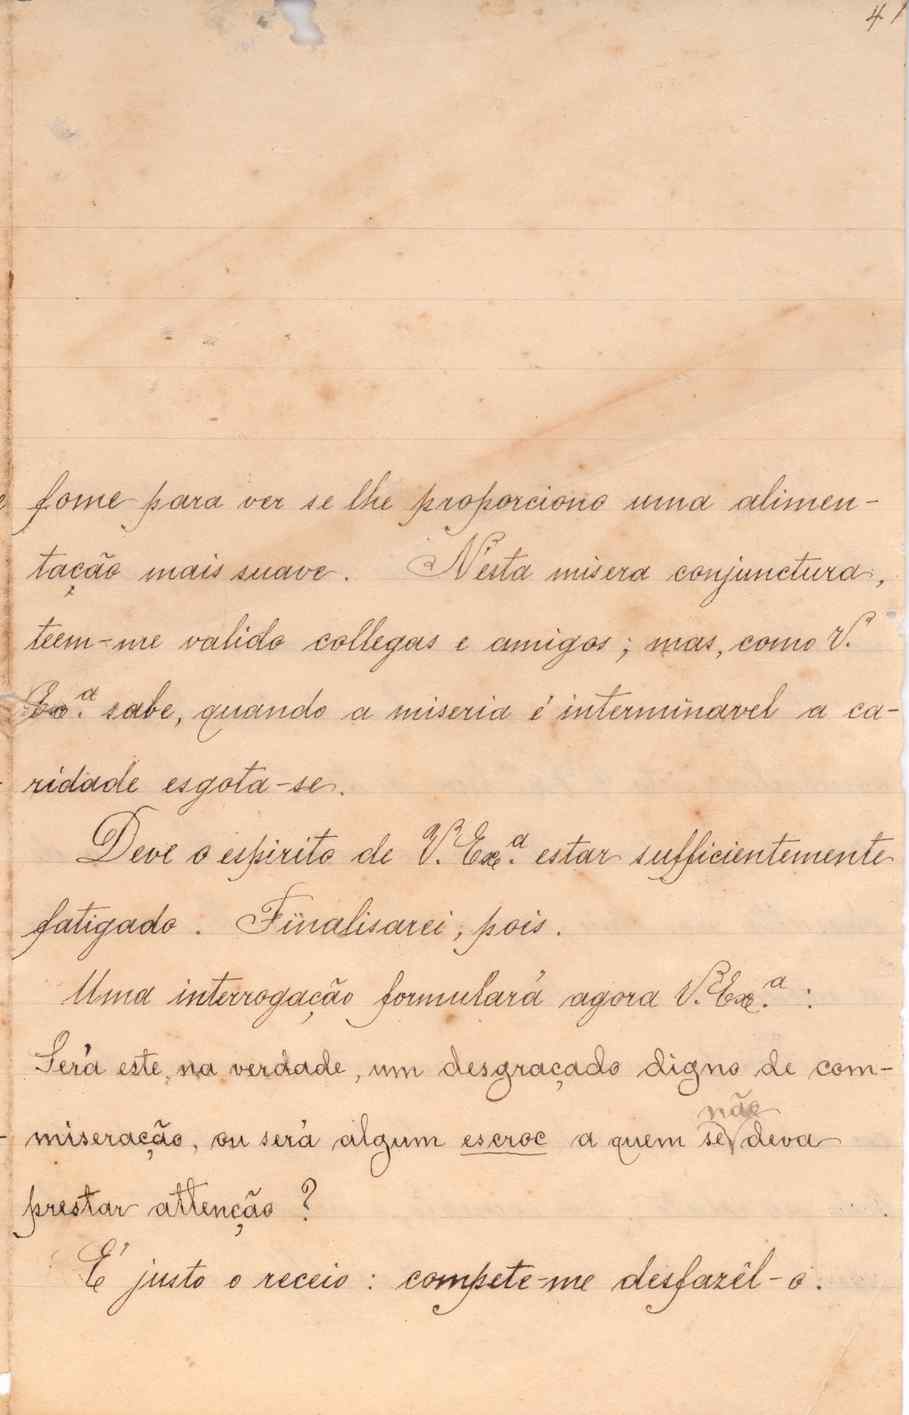 41
fome para ver se lhe proporciono uma alimen-
tação mais suave. N'esta misera conjunctura,
teem-me valido collegas e amigos; mas, como V.
Ex.ª sabe, quando a miseria é interminavel a ca-
ridade esgota-se.
Deve o espirito de V. Ex.ª estar sufficientemente
fatigado. Finalisarei, pois.
Uma interrogação formulará agora V. Ex.ª :
Será este, na verdade, um desgraçado digno de com-
não
miseração, ou será algum escroc a quem se deva
prestar attenção?
É justo o receio: compete-me desfazêl-o.